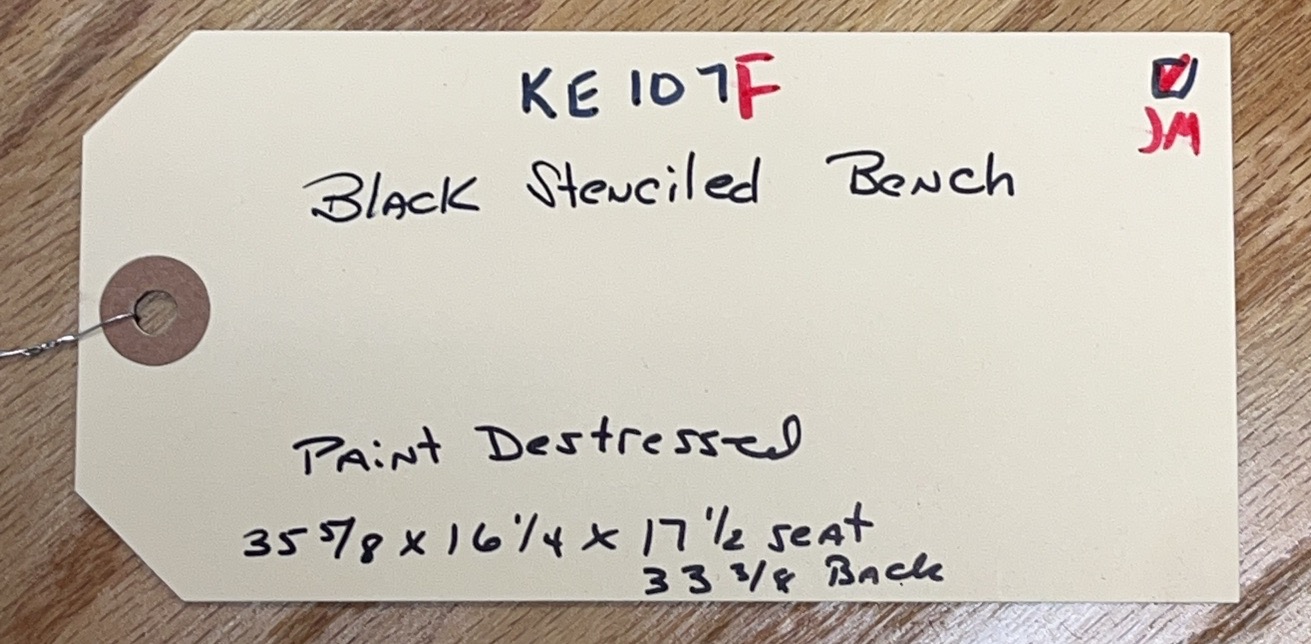 KE107F
JM
Black Stenciled Bench
Paint Destressed
35 5/8 x 16 1/4 x 17 1/2 seat
33 3/8 Back